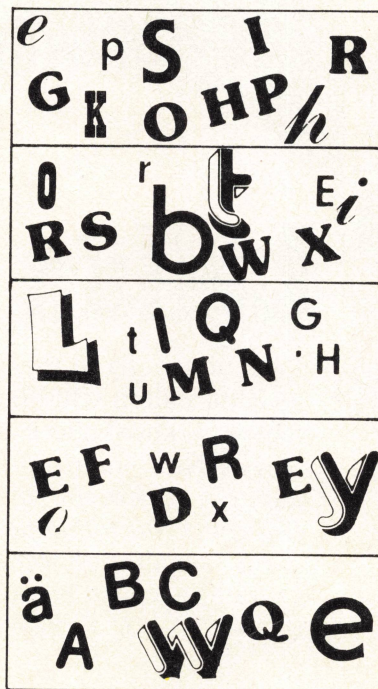 e p S I R
G K O H P h
O r b t E i
R S W X
L t I Q G
u M N H
E F w R E y
D x
ä B C
A W Q e